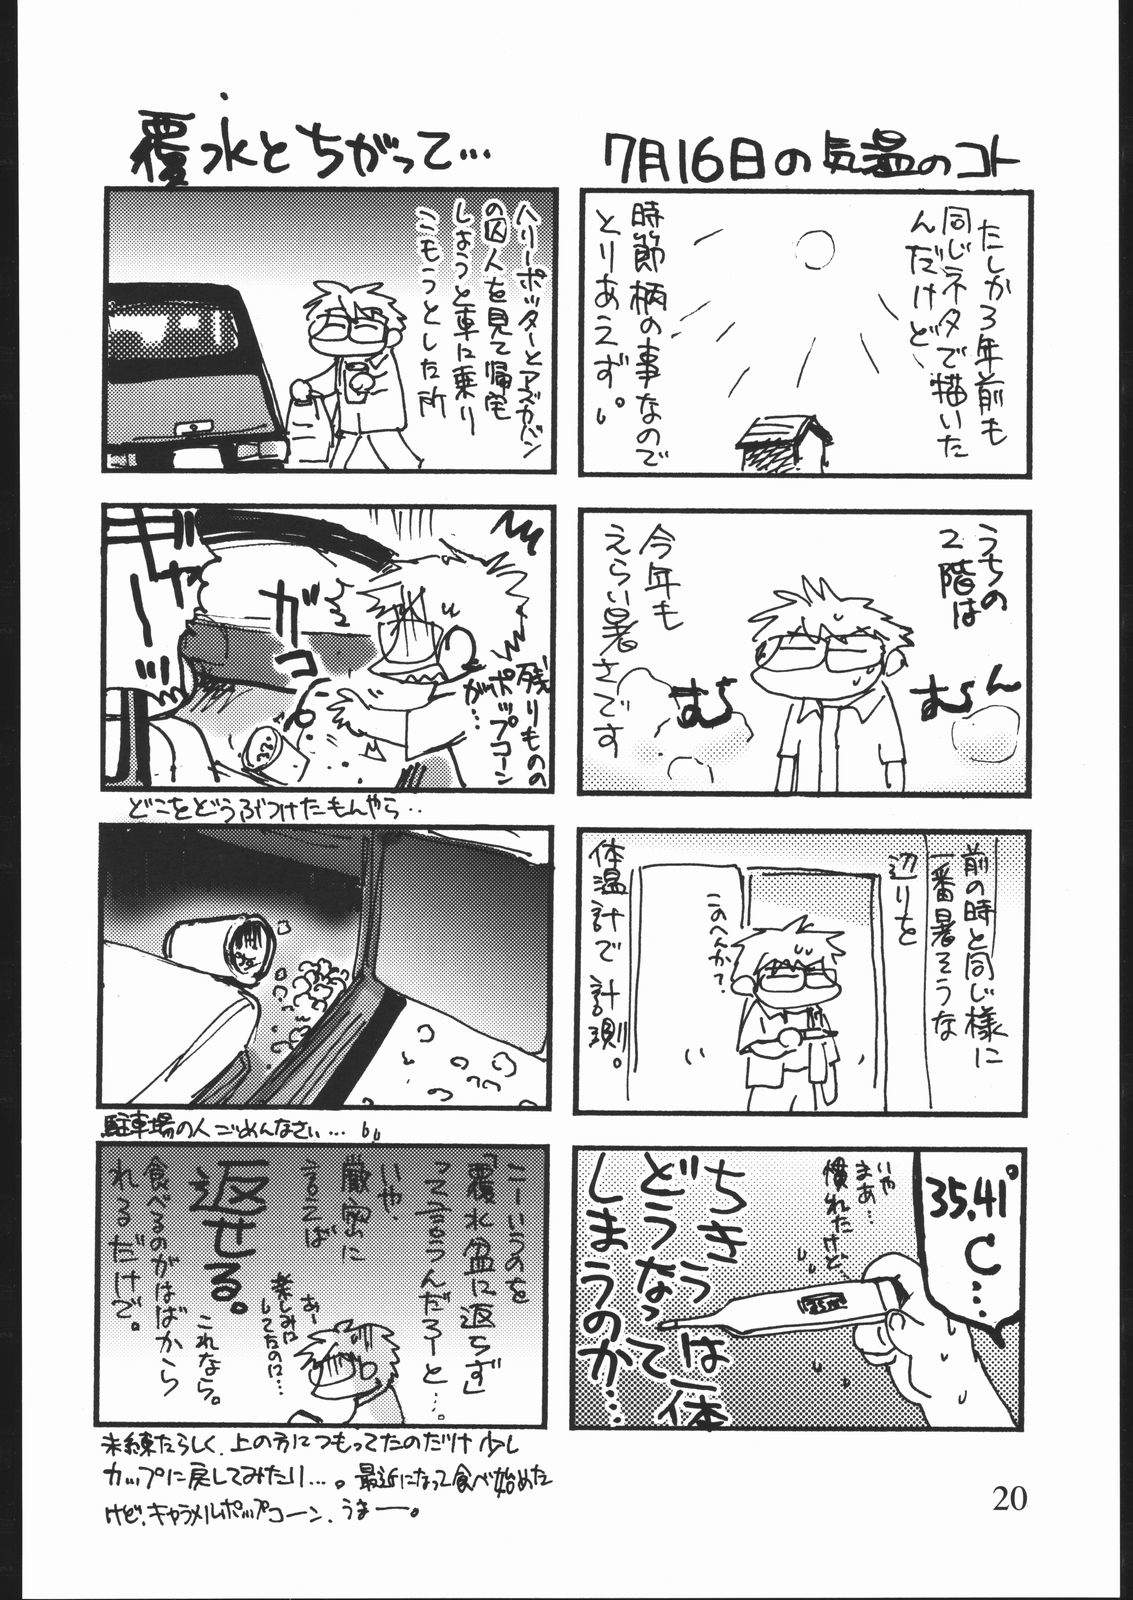 7月16日の気温のコト
たしか3年前も
同じネタで描いた
んだけど
時節柄の事なので
とりあえず。
うちの
2階は
むらん
むら
今年も
えらい暑さです
前の時と同じ様に
一番暑そうな
辺りを
このへんか?
体温計で計測。
35.41°
C…
いや
まあ…
慣れたけど、
ちきうは一体
どうなって
しまうのか…
覆水とちがって…
ハリーポッターとアズカバン
の囚人を見て帰宅
しようと車に乗り
こもうとした所
残りものの
ポップコーン
が…
ガコ
どこをどうぶつけたもんやら‥
駐車場の人ごめんなさい…
こーいうのを
「覆水盆に返らず」
って言うんだろーと…。
いや、
厳密に
言えば
返せる。
これなら。
食べるのがはばから
れるだけで。
あ〜
楽しみに
してたのに…
未練たらしく、上の方につもってたのだけ少し
カップに戻してみたり…。最近になって食べ始めた
けど、キャラメルポップコーン、うまー。
20